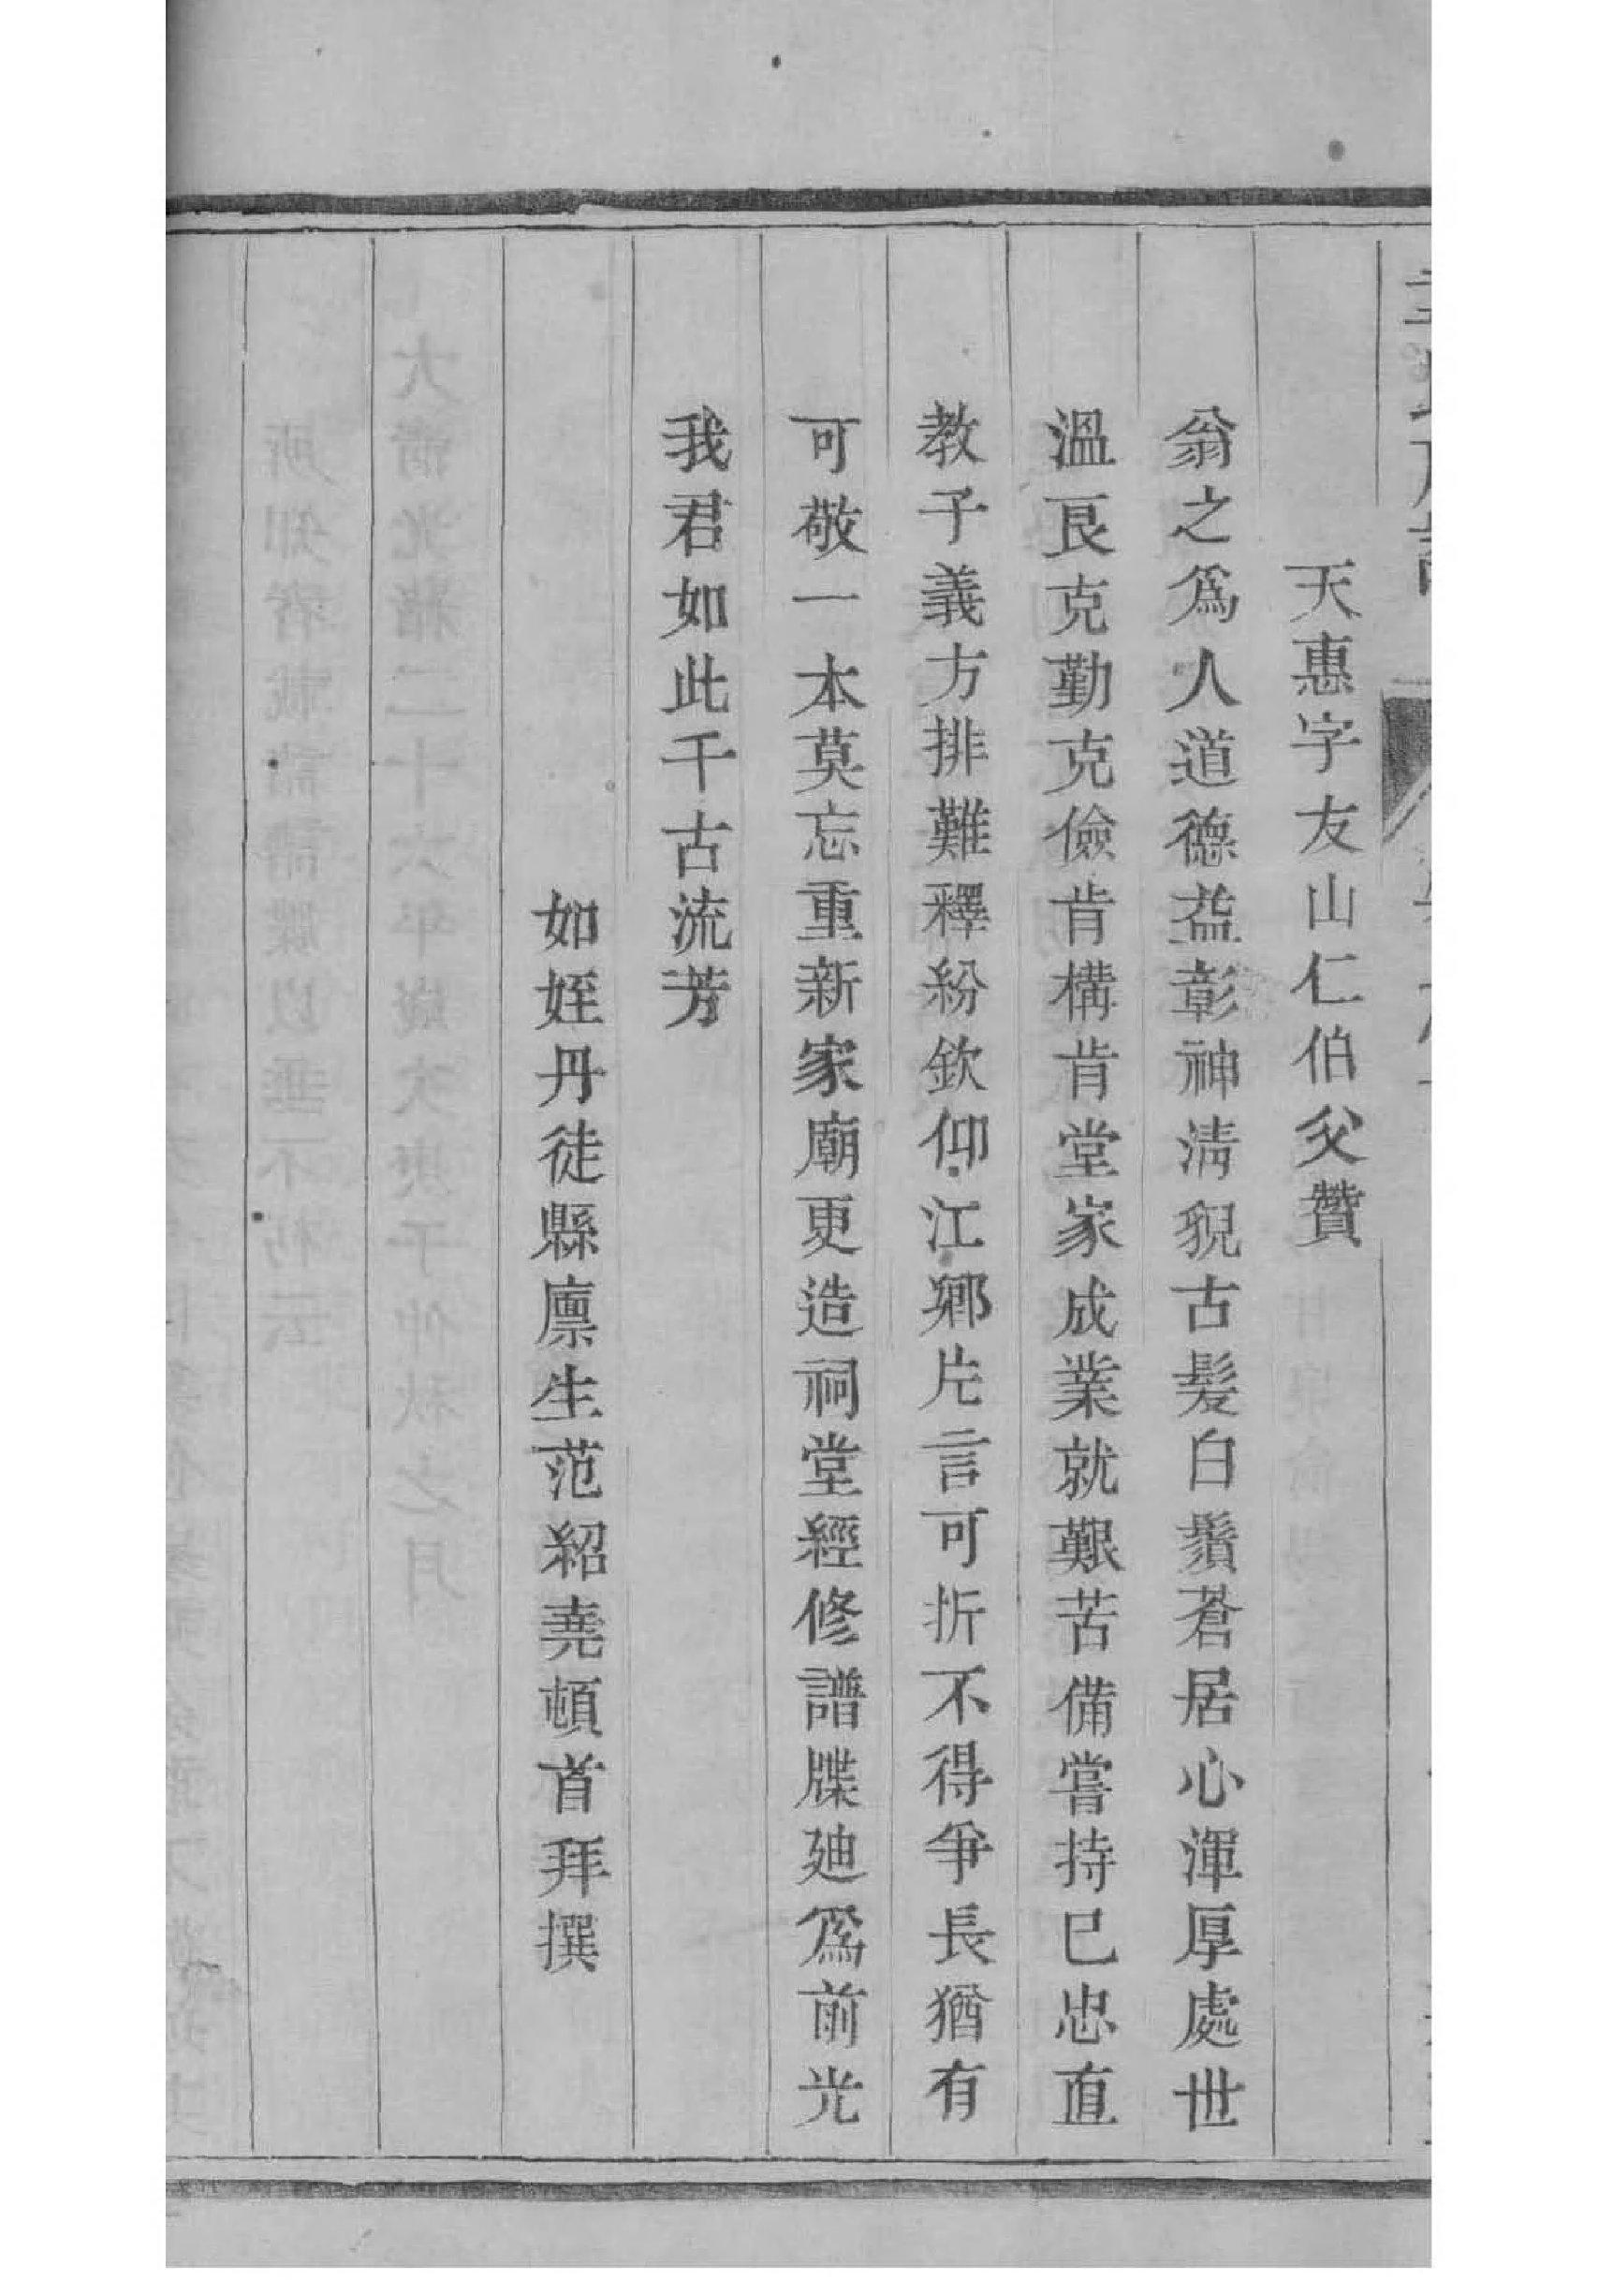 天惠字友山仁伯父贊
翁之爲人道德益彰神淸貌古髮白鬚蒼居心渾厚處世
溫良克勤克儉肯構肯堂家成業就艱苦備嘗持已忠直
教子義方排難釋紛欽仰江鄉片言可折不得爭長猶有
可敬一本莫忘重新家廟更造祠堂經修譜牒廸爲前光
我君如此千古流芳
如姪丹徒縣廩生范紹堯頓首拜撰